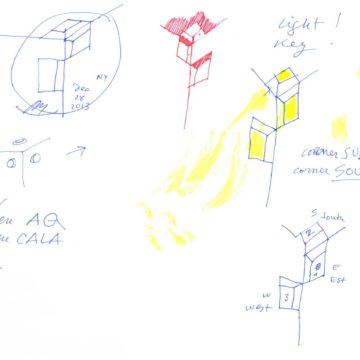 Light!
Key
NY
Dec
18
2013
corner SU
corner SOU
AQ
CALA
S South
2
E
Est
W
West
3